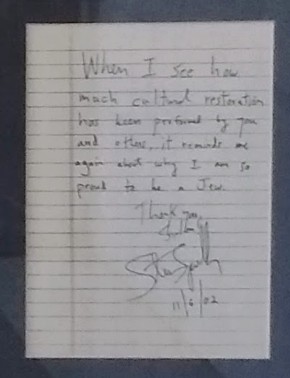 When I see how
much cultural restoration
has been preformed by you
and others, it reminds me
again about why I am so
proud to be a Jew.
Thank you,
11/6/02